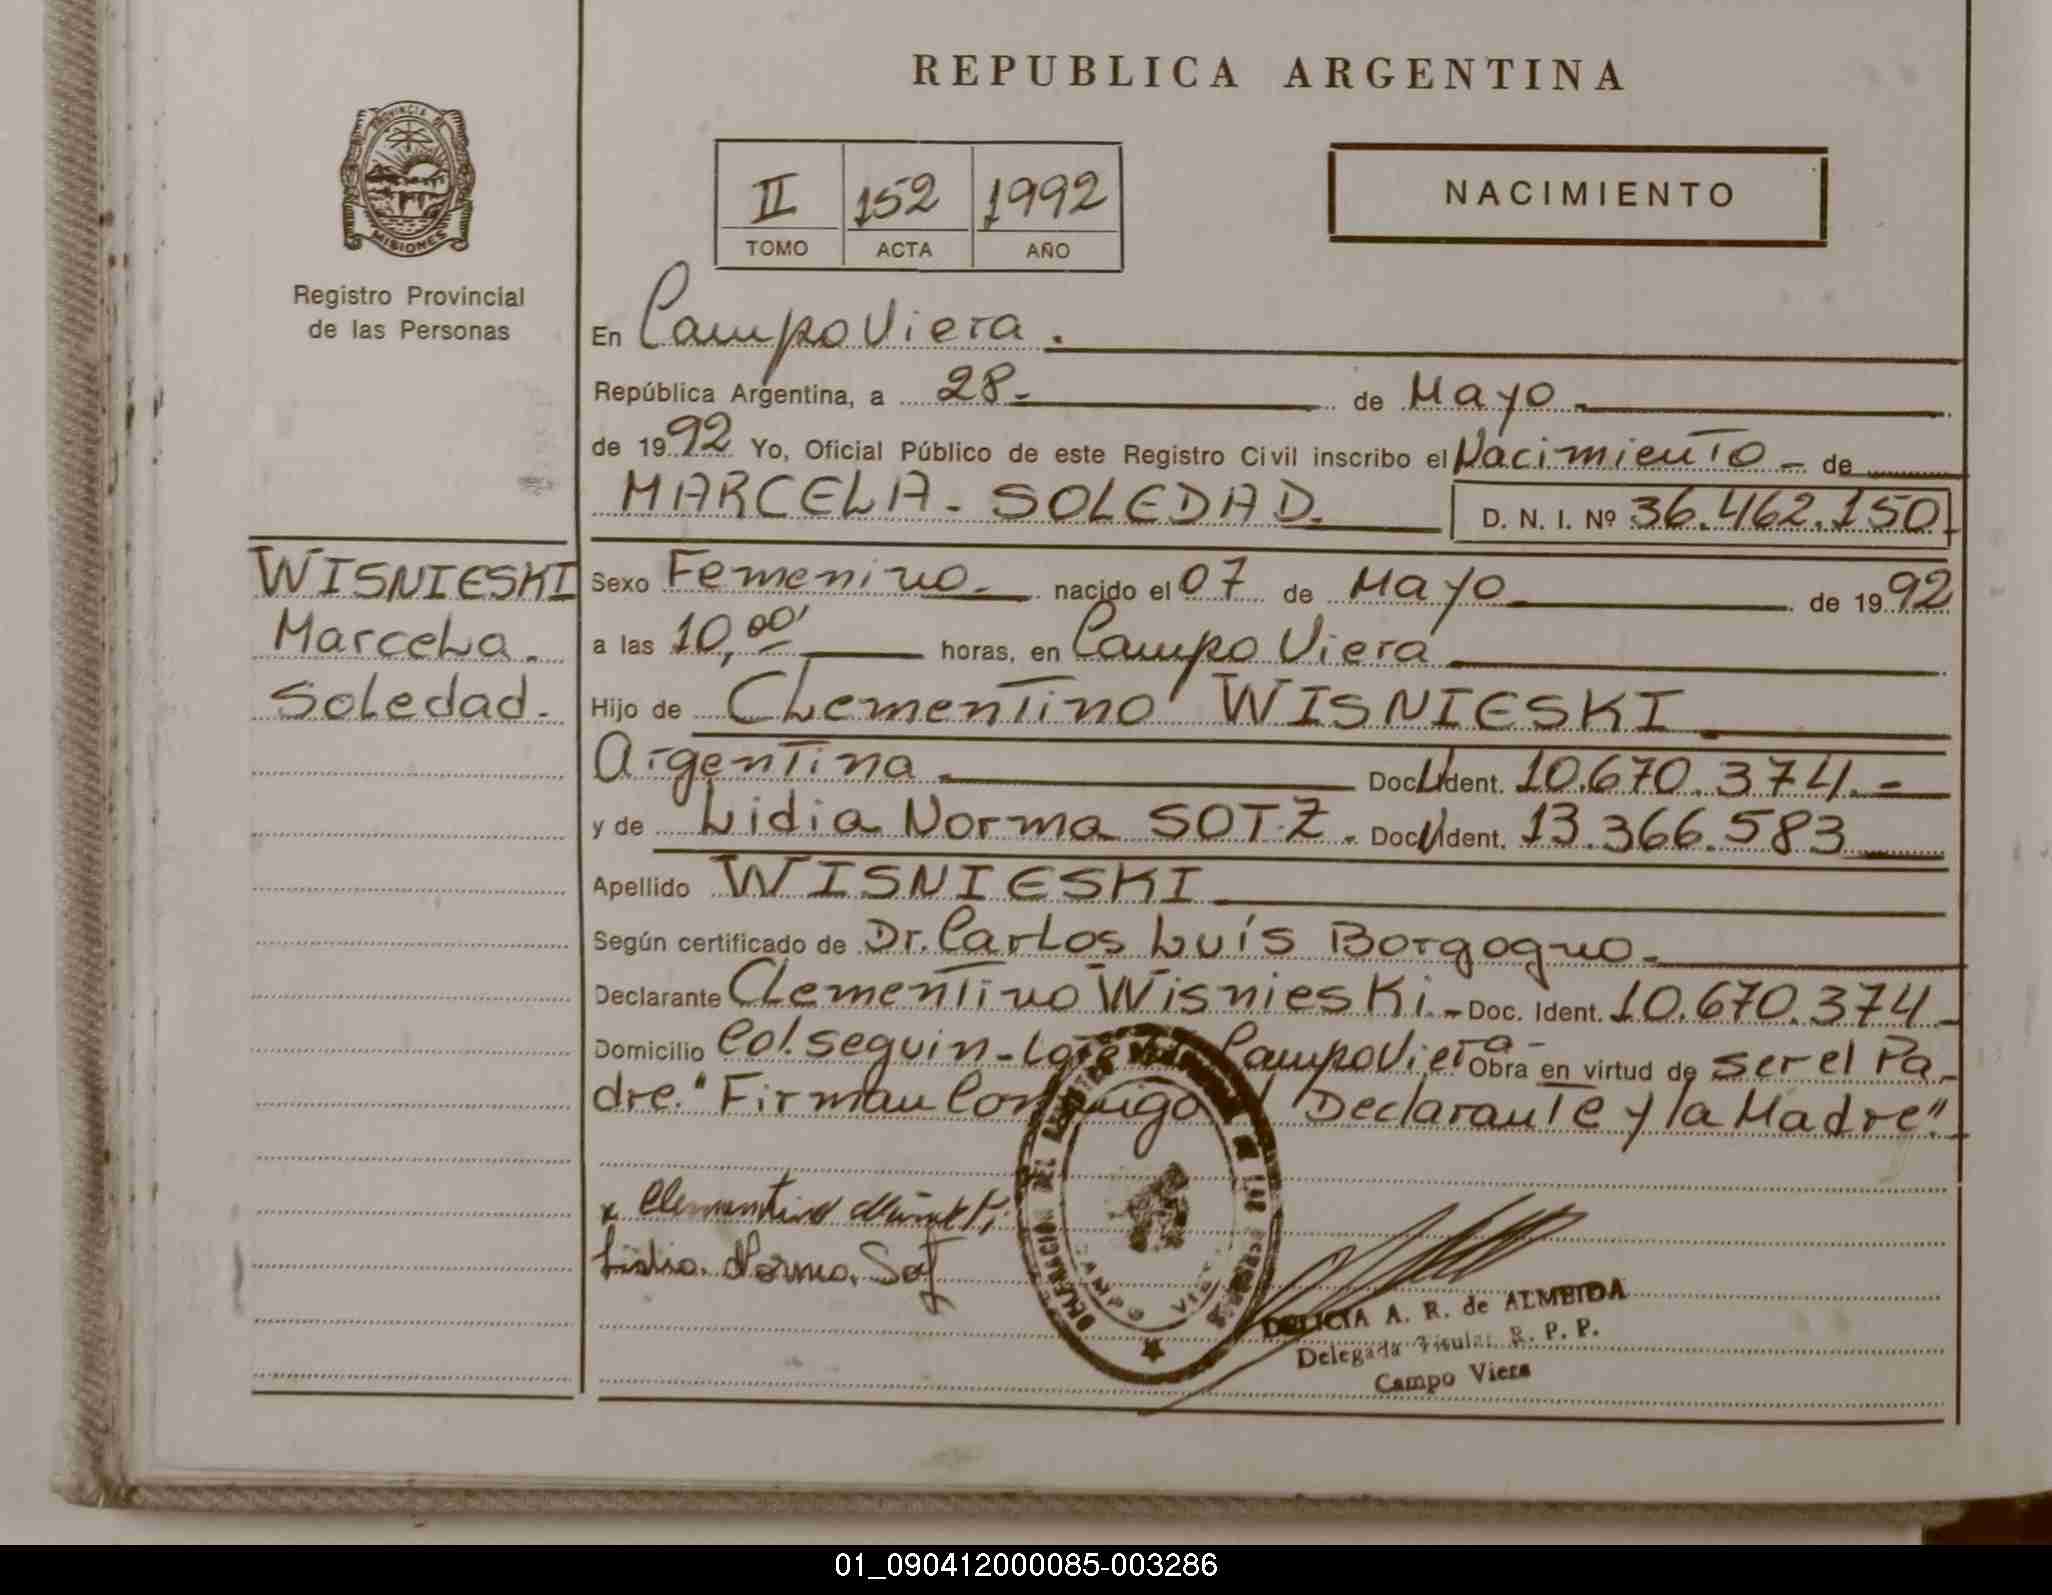 REPUBLICA ARGENTINA
PROVINCIA DE
MISIONES
Registro Provincial
de las Personas
II 152 1992
TOMO ACTA AÑO
NACIMIENTO
En Campo Viera.
República Argentina, a 28- de Mayo
de 1992 Yo, Oficial Público de este Registro Civil inscribo el Nacimiento - de
MARCELA - SOLEDAD. D. N. I. Nº 36.462.150
WISNIESKI
Marcela.
Soledad.
Sexo Femenino nacido el 07 de Mayo de 1992
a las 10,00' horas, en Campo Viera
Hijo de Clementino WISNIESKI
Argentina Doc. Ident. 10.670.374.-
y de Lidia Norma SOTZ. Doc. Ident. 13.366.583
Apellido WISNIESKI
Según certificado de Dr. Carlos Luís Borgogno-
Declarante Clementino Wisnieski.- Doc. Ident. 10.670.374-
Domicilio Col. seguin - Lote Campo Viera- Obra en virtud de ser el Pa-
dre." Firman Conmigo el Declarante y la Madre".
x Clementino Wisnieski
Lidia Norma Sotz
DELEGACION DEL REGISTRO PROVINCIAL DE LAS PERSONAS
CAMPO VIERA
DELICIA A. R. de ALMEIDA
Delegada Titular R. P. P.
Campo Viera
01_090412000085-003286